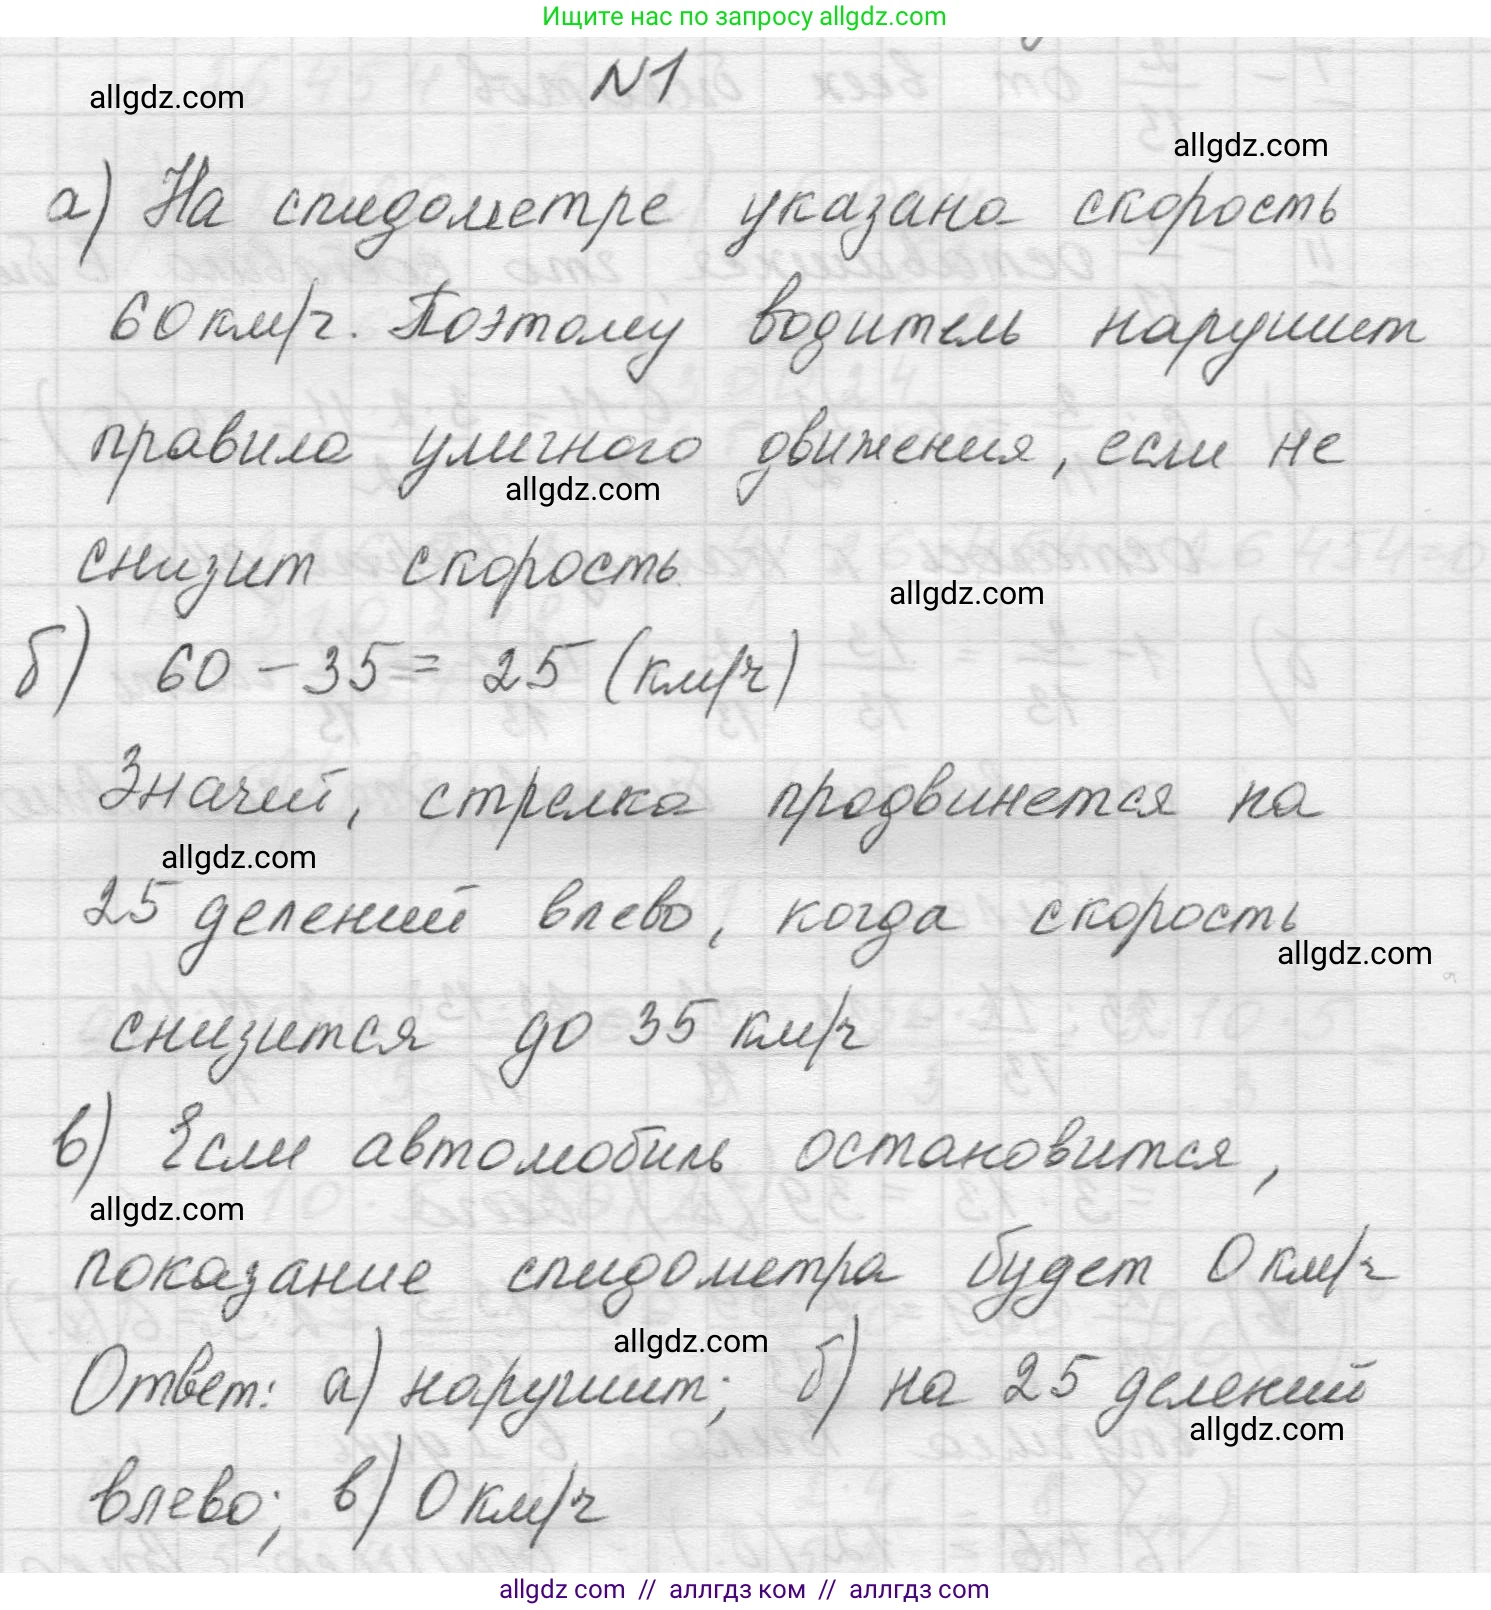 Ищите нас по запросу allgdz.com
N1
allgdz.com
allgdz.com
а) На спидометре указана скорость
60 км/ч. Поэтому водитель нарушит
правила уличного движения, если не
allgdz.com
снизит скорость
allgdz.com
б) 60 - 35 = 25 (км/ч)
Значит, стрелка продвинется на
allgdz.com
25 делений влево, когда скорость
allgdz.com
снизится до 35 км/ч
в) Если автомобиль остановится,
allgdz.com
показание спидометра будет 0 км/ч
allgdz.com
Ответ: а) нарушит; б) на 25 делений
allgdz.com
влево; в) 0 км/ч
allgdz.com // аллгдз ком // аллгдз.com